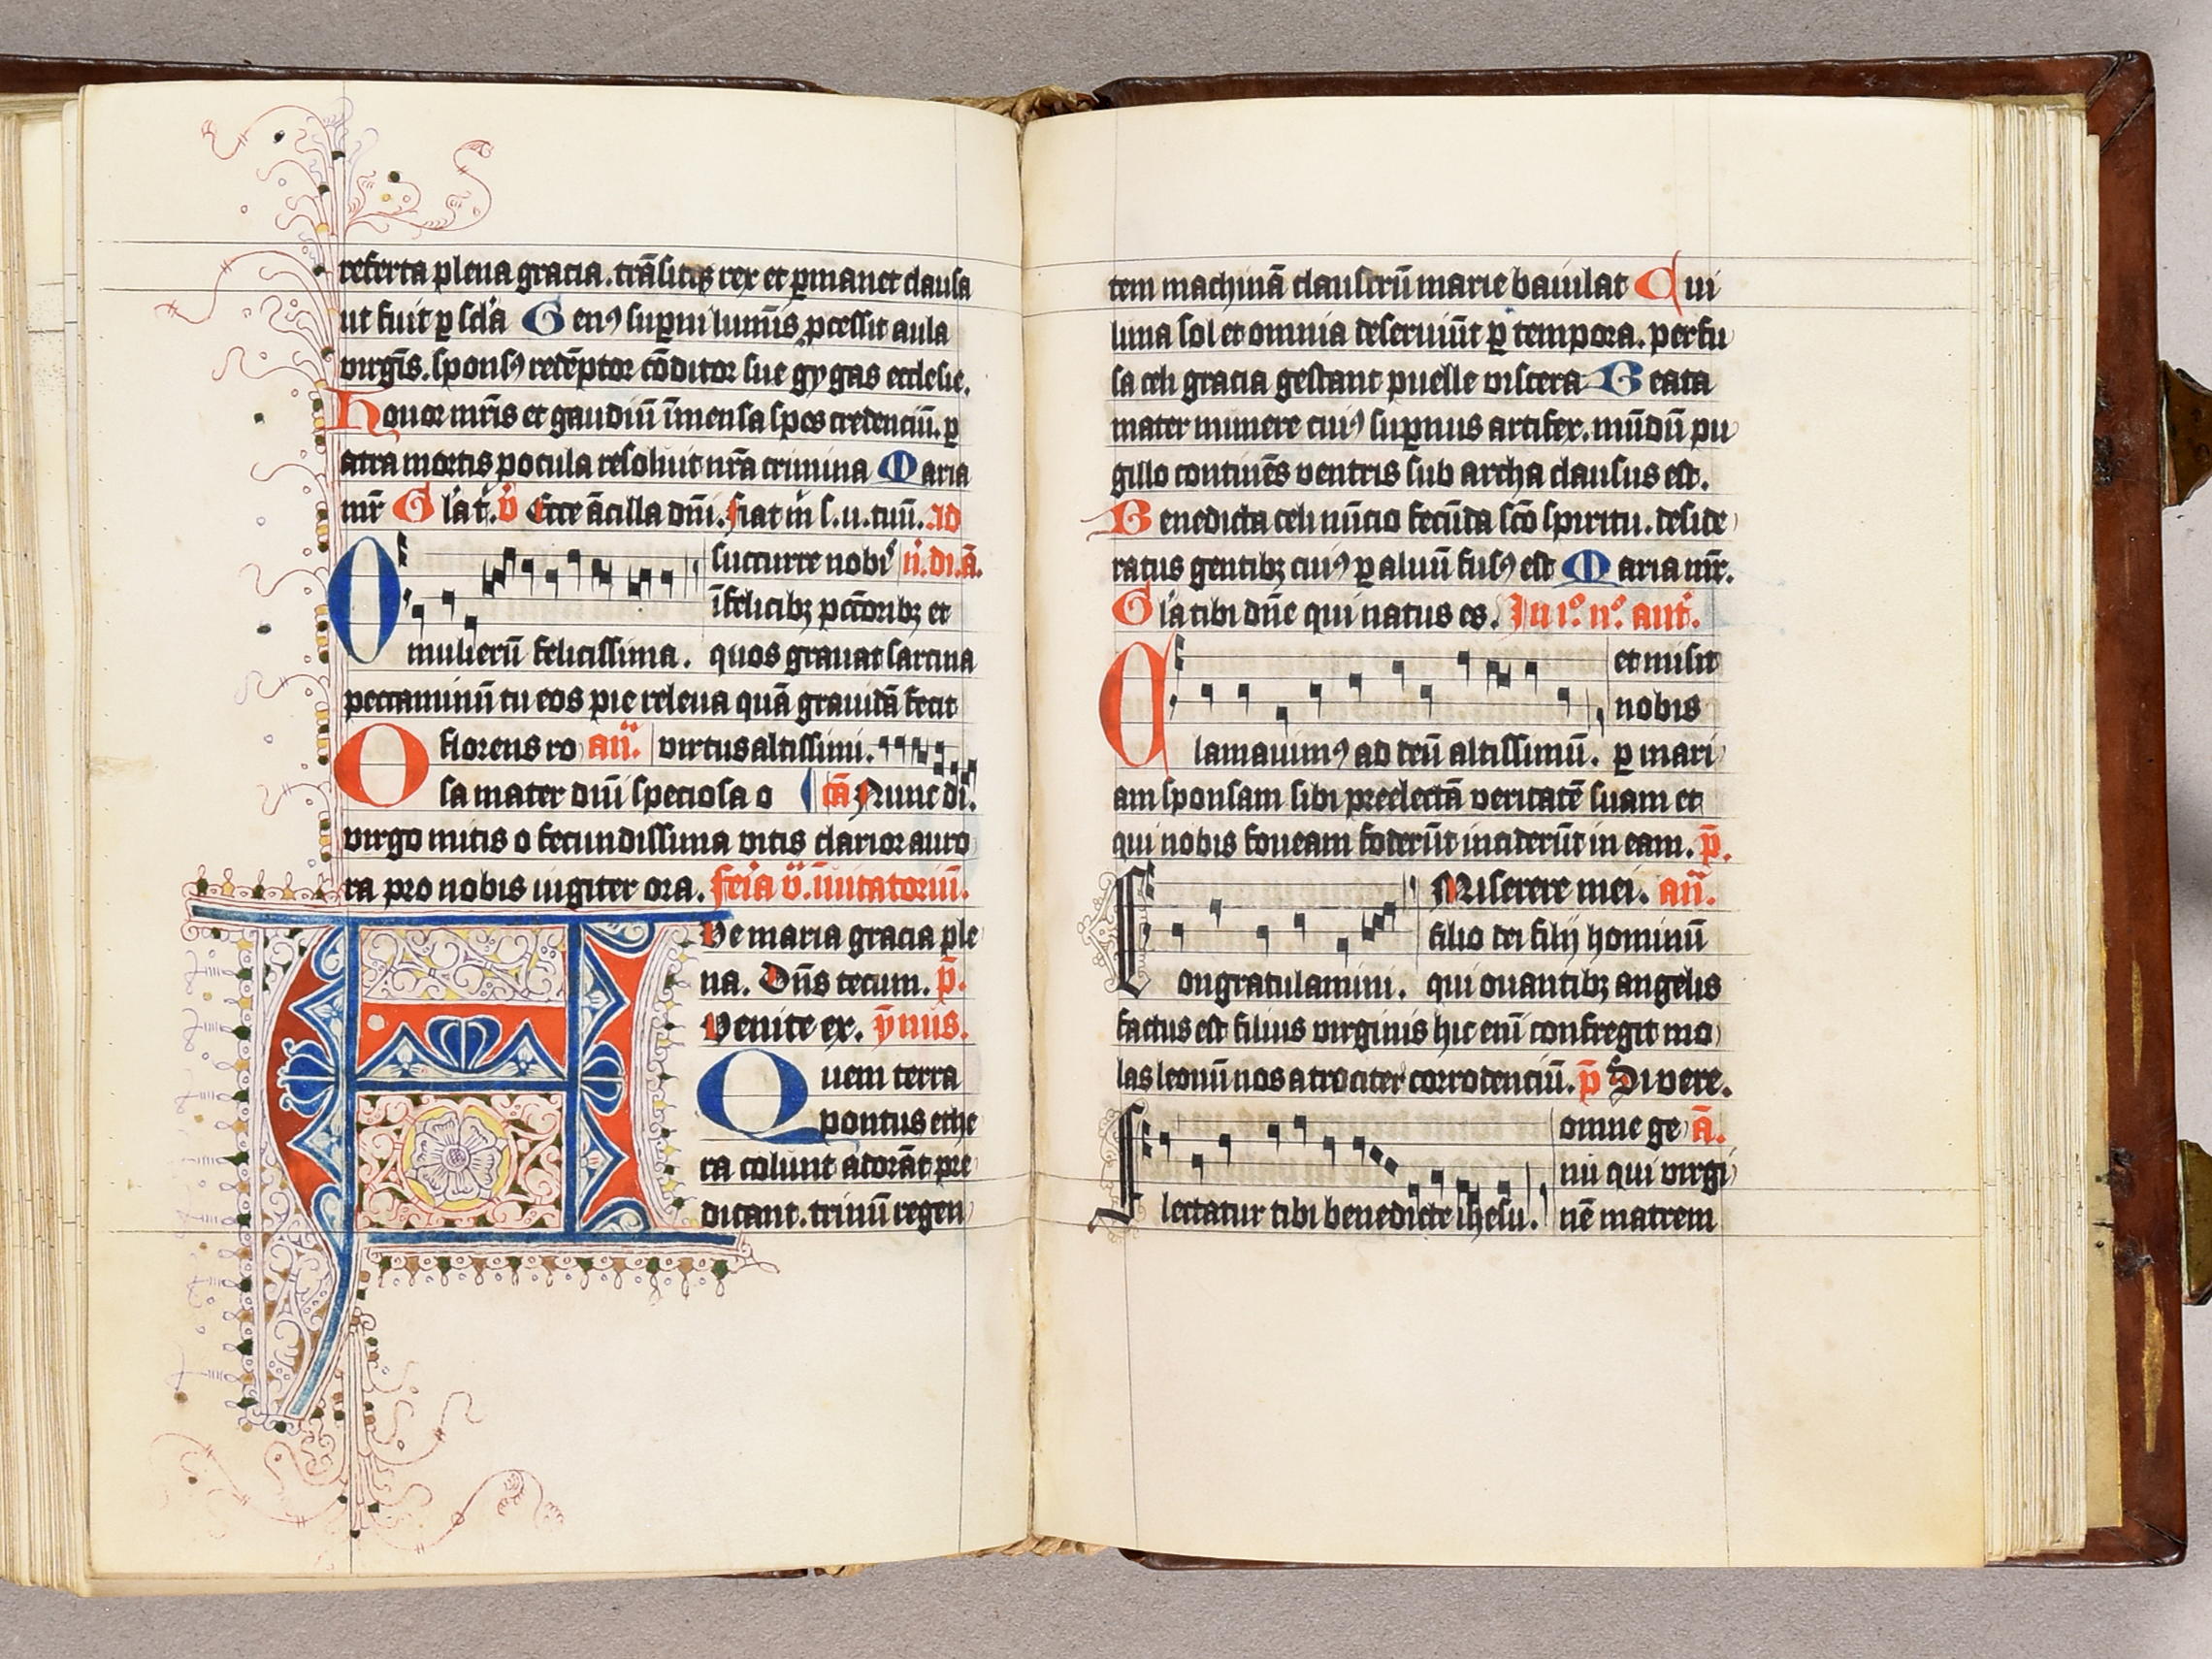 referta plena gracia. trāsitq̄ rex et ꝑmanet clausa
ut fuit ꝑ sc̄la Genꝰ supͥni lumīs ꝓcessit aula
virgīs. sponsꝰ redēptor cōditor sue gygas ecclesie.
Honor mr̄is et gaudiū īmensa spes credenciū. ꝑ
atra mortis pocula resoluit nr̄a crimina Maria
mr̄ Gl̄a t. v̄ Ecce ācilla dn̄i. fiat m̄ s. u. tuū. Ad
succurre nobis n̄. di. ā.
īfelicibꝫ pcc̄oribꝫ et
O mulierū felicissima. quos grauat sarcina
peccaminū tu eos pie releua quā grauidā fecit
O florens ro an̄. virtus altissimi.
sa mater dn̄i speciosa o cā Nunc di.
virgo mitis o fecundissima vitis clarior auro
ra pro nobis iugiter ora. feͥa v̄. īuitatoriū.
A Ve maria gracia ple
na. Dn̄s tecum. p̄.
Venite ex. ymͣs.
Quem terra
pontus ethe
ra colunt adorāt pre
dicant. trinū regen
tem machinā claustrū marie baiulat Cui
luna sol et omnia deseruiūt ꝑ tempora. perfu
sa celi gracia gestant puelle viscera Beata
mater munere cuiꝰ suꝑnus artifex. mūdū pu
gillo continēs ventris sub archa clausus est.
Benedicta celi nūcio fecūda sc̄o spiritu. deside
ratus gentibꝫ cuiꝰ ꝑ aluū fusꝰ est Maria mr̄.
Gl̄a tibi dn̄e qui natus es. In i.º n.º ant.
et misit
nobis
Clamauimꝰ ad deū altissimū. ꝑ mari
am sponsam sibi preelectā veritatē suam et
qui nobis foueam foderūt inciderūt in eam. p̄.
Miserere mei. an̄.
filio dei filij hominū
Congratulamini. qui ouantibꝫ angelis
factus est filius virginis hic enī confregit mo
las leonū nos atrociter corrodenciū. p̄ Si vere.
omne ge ā.
nu qui virgi
Flectatur tibi benedicte ihesu. nē matrem